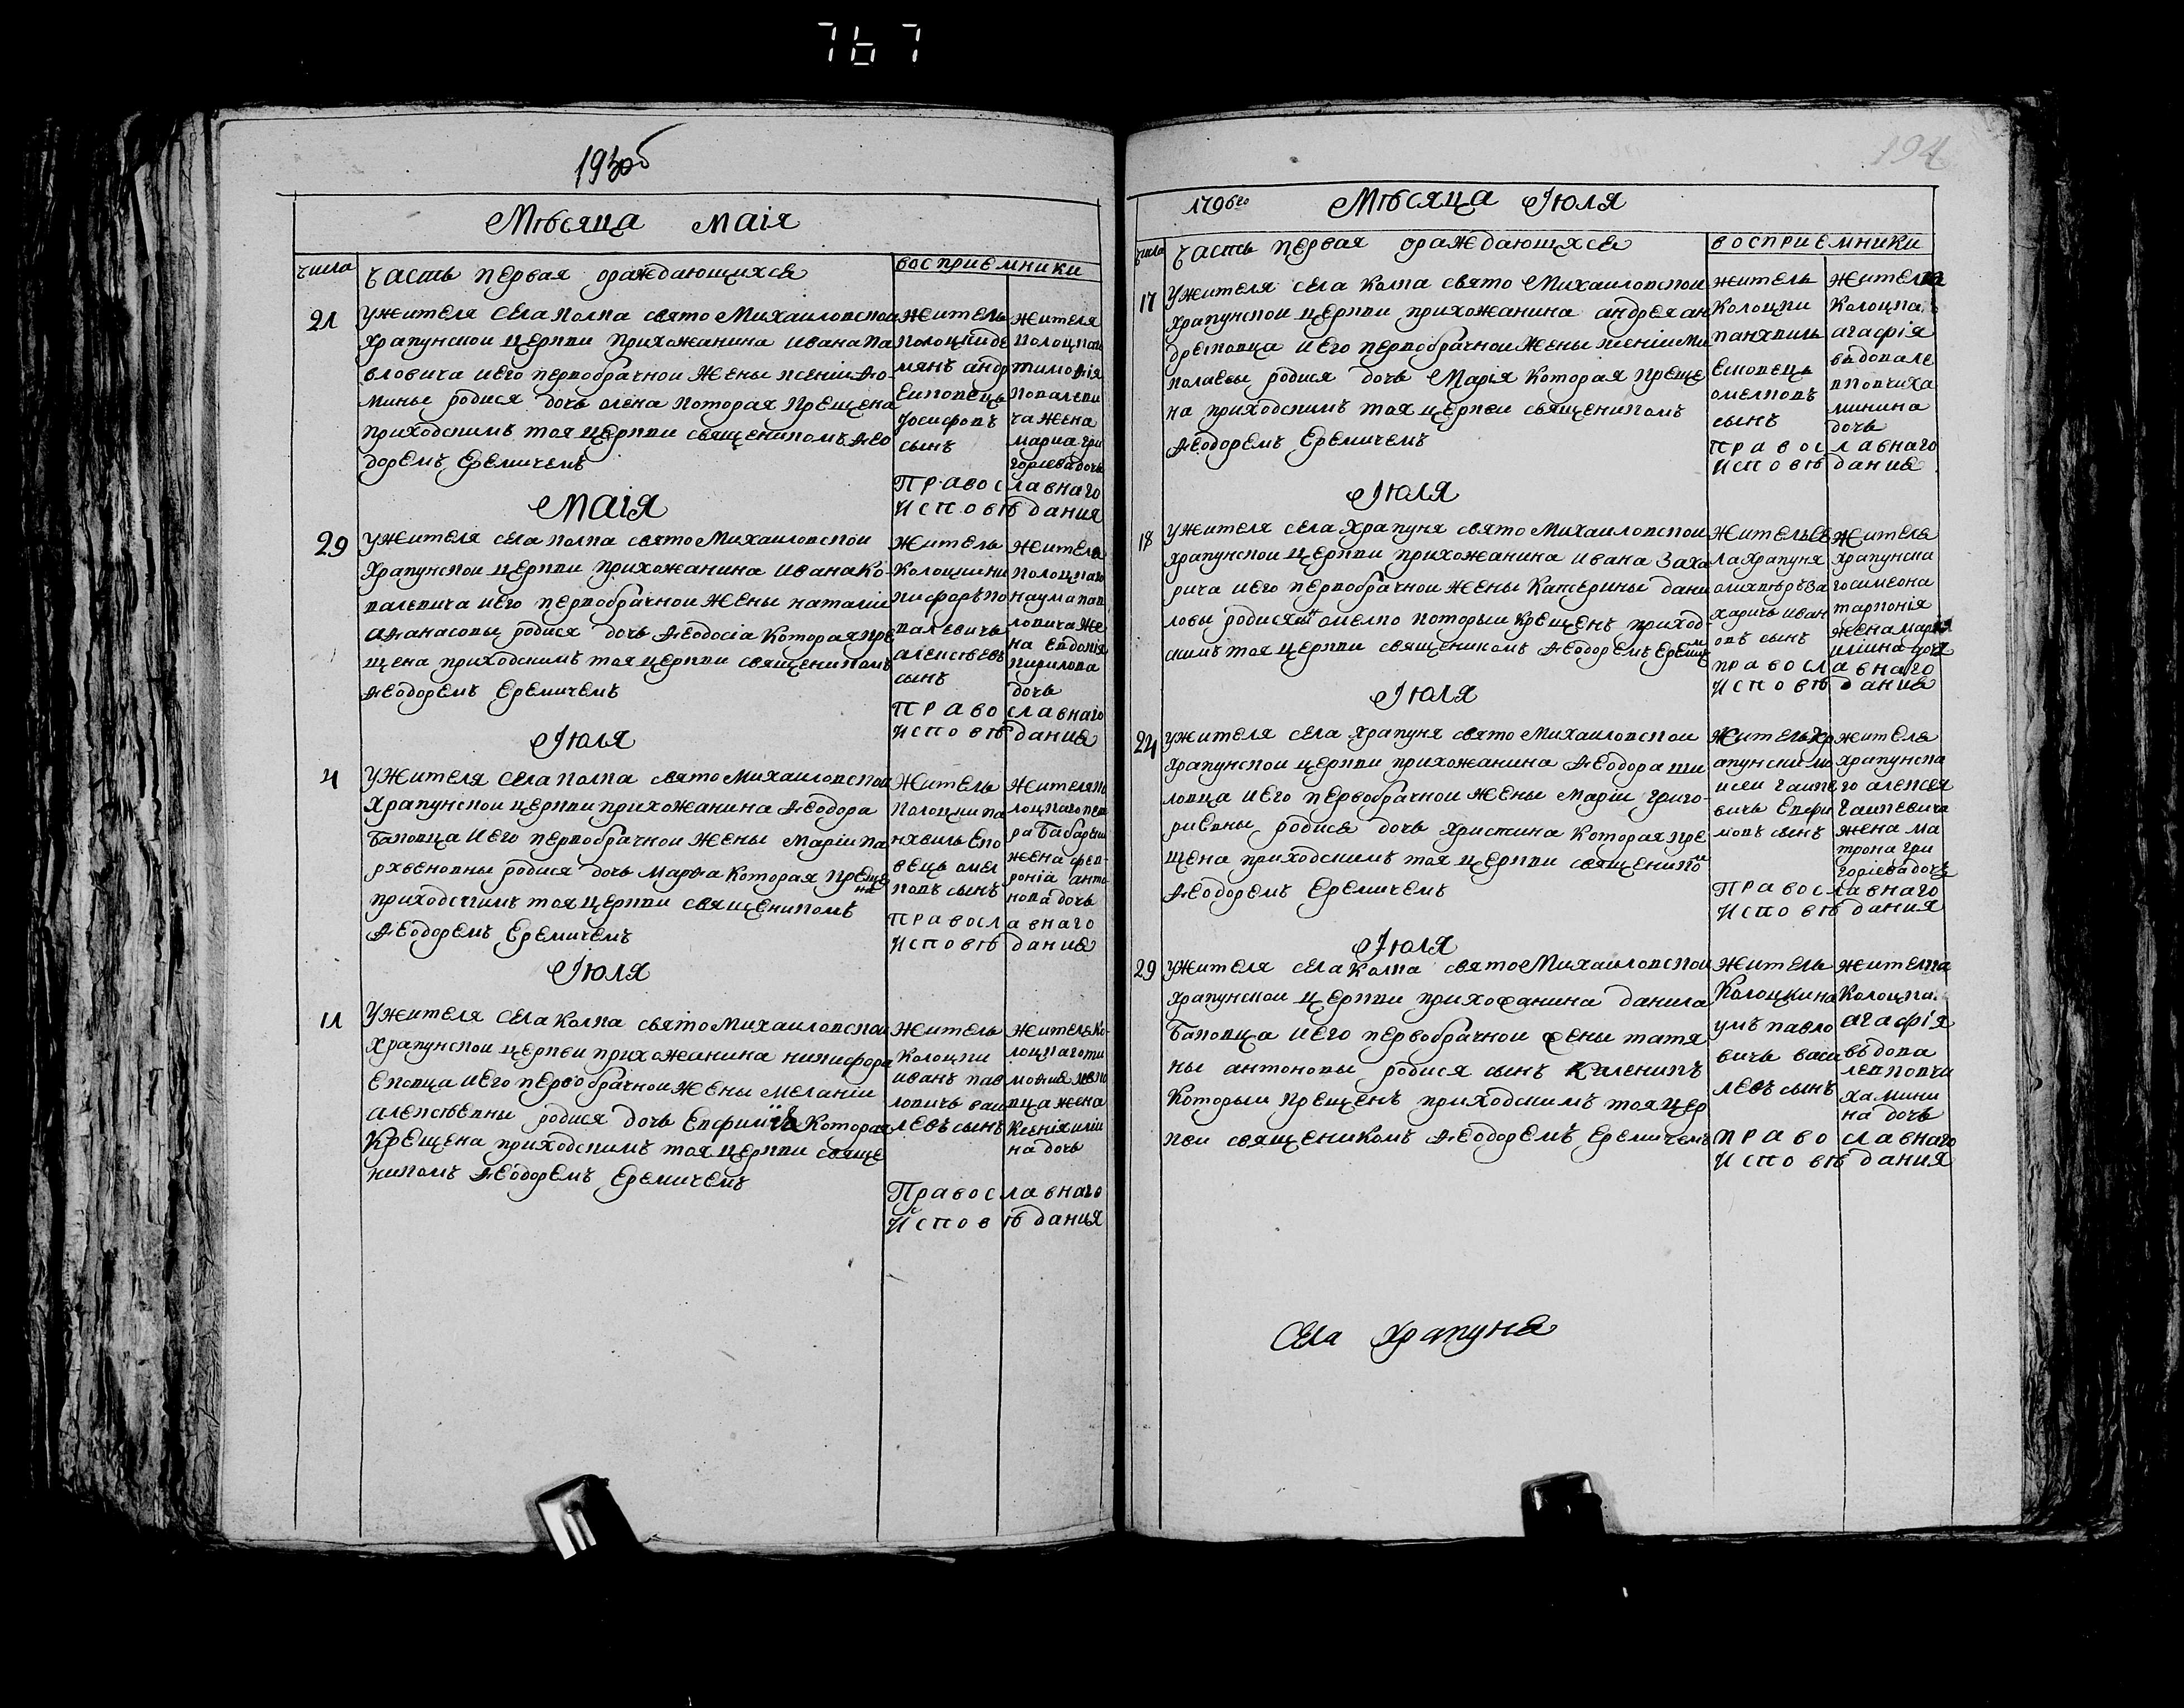 767
193об
Мѣсяца Маія
числа
часть первая ораждающихся
восприемники
21
Ужителя села Колпа свято Михаиловской
Храпунской церкви прихожанина ивана па
вловича иего первобрачной жены ксеніи Ѳо
мины родися дочь олена которая крещена
приходскимъ тоя церкви священикомъ Ѳео
доремъ Еремичемъ
житель
Колоцкий де
мянъ андр
Еиковець
Іосифовъ
сынъ
жителя
Колоцкаго
тимоѳія
Ковалеви
ча жена
мариа гри
гориева дочь
Православнаго
Исповѣдания
Маія
29
Ужителя села Колпа свято Михаиловской
Храпунской церкви прихожанина ивана Ко
валевича иего первобрачной жены наталіи
аѳанасовы родися дочь Ѳеодосіа Которая кре
щена приходскимъ тоя церкви священикомъ
Ѳеодоремъ Еремичемъ
Житель
Колоцки ни
кифоръ ко
валевичь
алексѣевъ
сынъ
жителя
Колоцкаго
наума пав
ловича же
на Евдокія
Кирилова
дочь
Православнаго
Исповѣдания
Іюля
4
Ужителя села Колпа свято Михаиловской
Храпунской церкви прихожанина Ѳеодора
Баковца иего первобрачной жены Маріи па
рхвеновны родися дочь Марѳа Которая креще
на
приходскимъ тоя церкви священикомъ
Ѳеодоремъ Еремичемъ
Житель
Колоцки па
нхвиль Еко
вець омел
ковъ сынъ
Жителя Ко
лоцкаго пет
ра Бабарыки
жена фев
роніа анто
нова дочь
Православнаго
Исповѣдания
Іюля
11
Ужителя села Колпа свято Михаиловской
Храпунской церкви прихожанина никифора
Ековца иего первобрачной жены Меланіи
алексѣевны родися дочь Евфиміа Которая
Крещена приходскимъ тоя церкви свяще
никомъ Ѳеодоремъ Еремичемъ
Житель
Колоцки
иванъ пав
ловичь васи
левъ сынъ
Жителя Ко
лоцкаго ти
моѳиа леко
вца жена
Ксенія иліи
на дочь
Православнаго
Исповѣдания
194
1796го Мѣсяца Іюля
числа
часть первая ораждающихся
восприемники
17
Ужителя села Колпа свято Михаиловской
Храпунской церкви прихожанина андрея ан
дреиковца иего первобрачной жены ксеніи Ми
колаевы родися дочь Марія Которая креще
на приходскимъ тоя церкви священикомъ
Ѳеодоремъ Еремичемъ
житель
Колоцки
панхвиль
Ековець
омелковъ
сынъ
жителка
Колоцкая
агафія
вѣдова ле
вковчиха
минина
дочь
Православнаго
Исповѣдания
Іюля
18
Ужителя села Храпуня свято Михаиловской
Храпунской церкви прихожанина ивана Заха
рича иего первобрачной жены Катерины дани
ловы родися омелко которыи крещенъ приход
скимъ тоя церкви священикомъ Ѳеодоремъ Ереми
Житель се
ла Храпуня
харичь иван
овъ сынъ
Жителя
Храпунска
го симеона
тарпонія
жена мария
илиина дочь
Православнаго
Исповѣдания
Іюля
24
Ужителя села Храпуня свято Михаиловской
Храпунской церкви прихожанина Ѳеодора ши
ловца иего первобрачной жены Маріи григо
риевны родися дочь Христина Которая кре
щена приходскимъ тоя церкви священико
Ѳеодоремъ Еремичемъ
Житель Хр
апунский мо
исеи гацке
вичь Евфи
мовъ сынъ
жителя
Храпунска
го алексея
Гацкевича
жена ма
трона гри
гориева дочь
Православнаго
Исповѣдания
Іюля
29
Ужителя села Колпа свято Михаиловской
Храпунской церкви прихоѳанина данила
Баковца иего первобрачной жены татя
ны антоновы родися сынъ Каленикъ
Которыи крещенъ приходскимъ тоя цер
кви священикомъ Ѳеодоремъ Еремичемъ
житель
Колоцки на
умъ павло
вичь васи
левъ сынъ
жителка
Колоцкая
агафія
вѣдова
левковчи
ха мини
на дочь
Православнаго
Исповѣдания
Села Храпуня